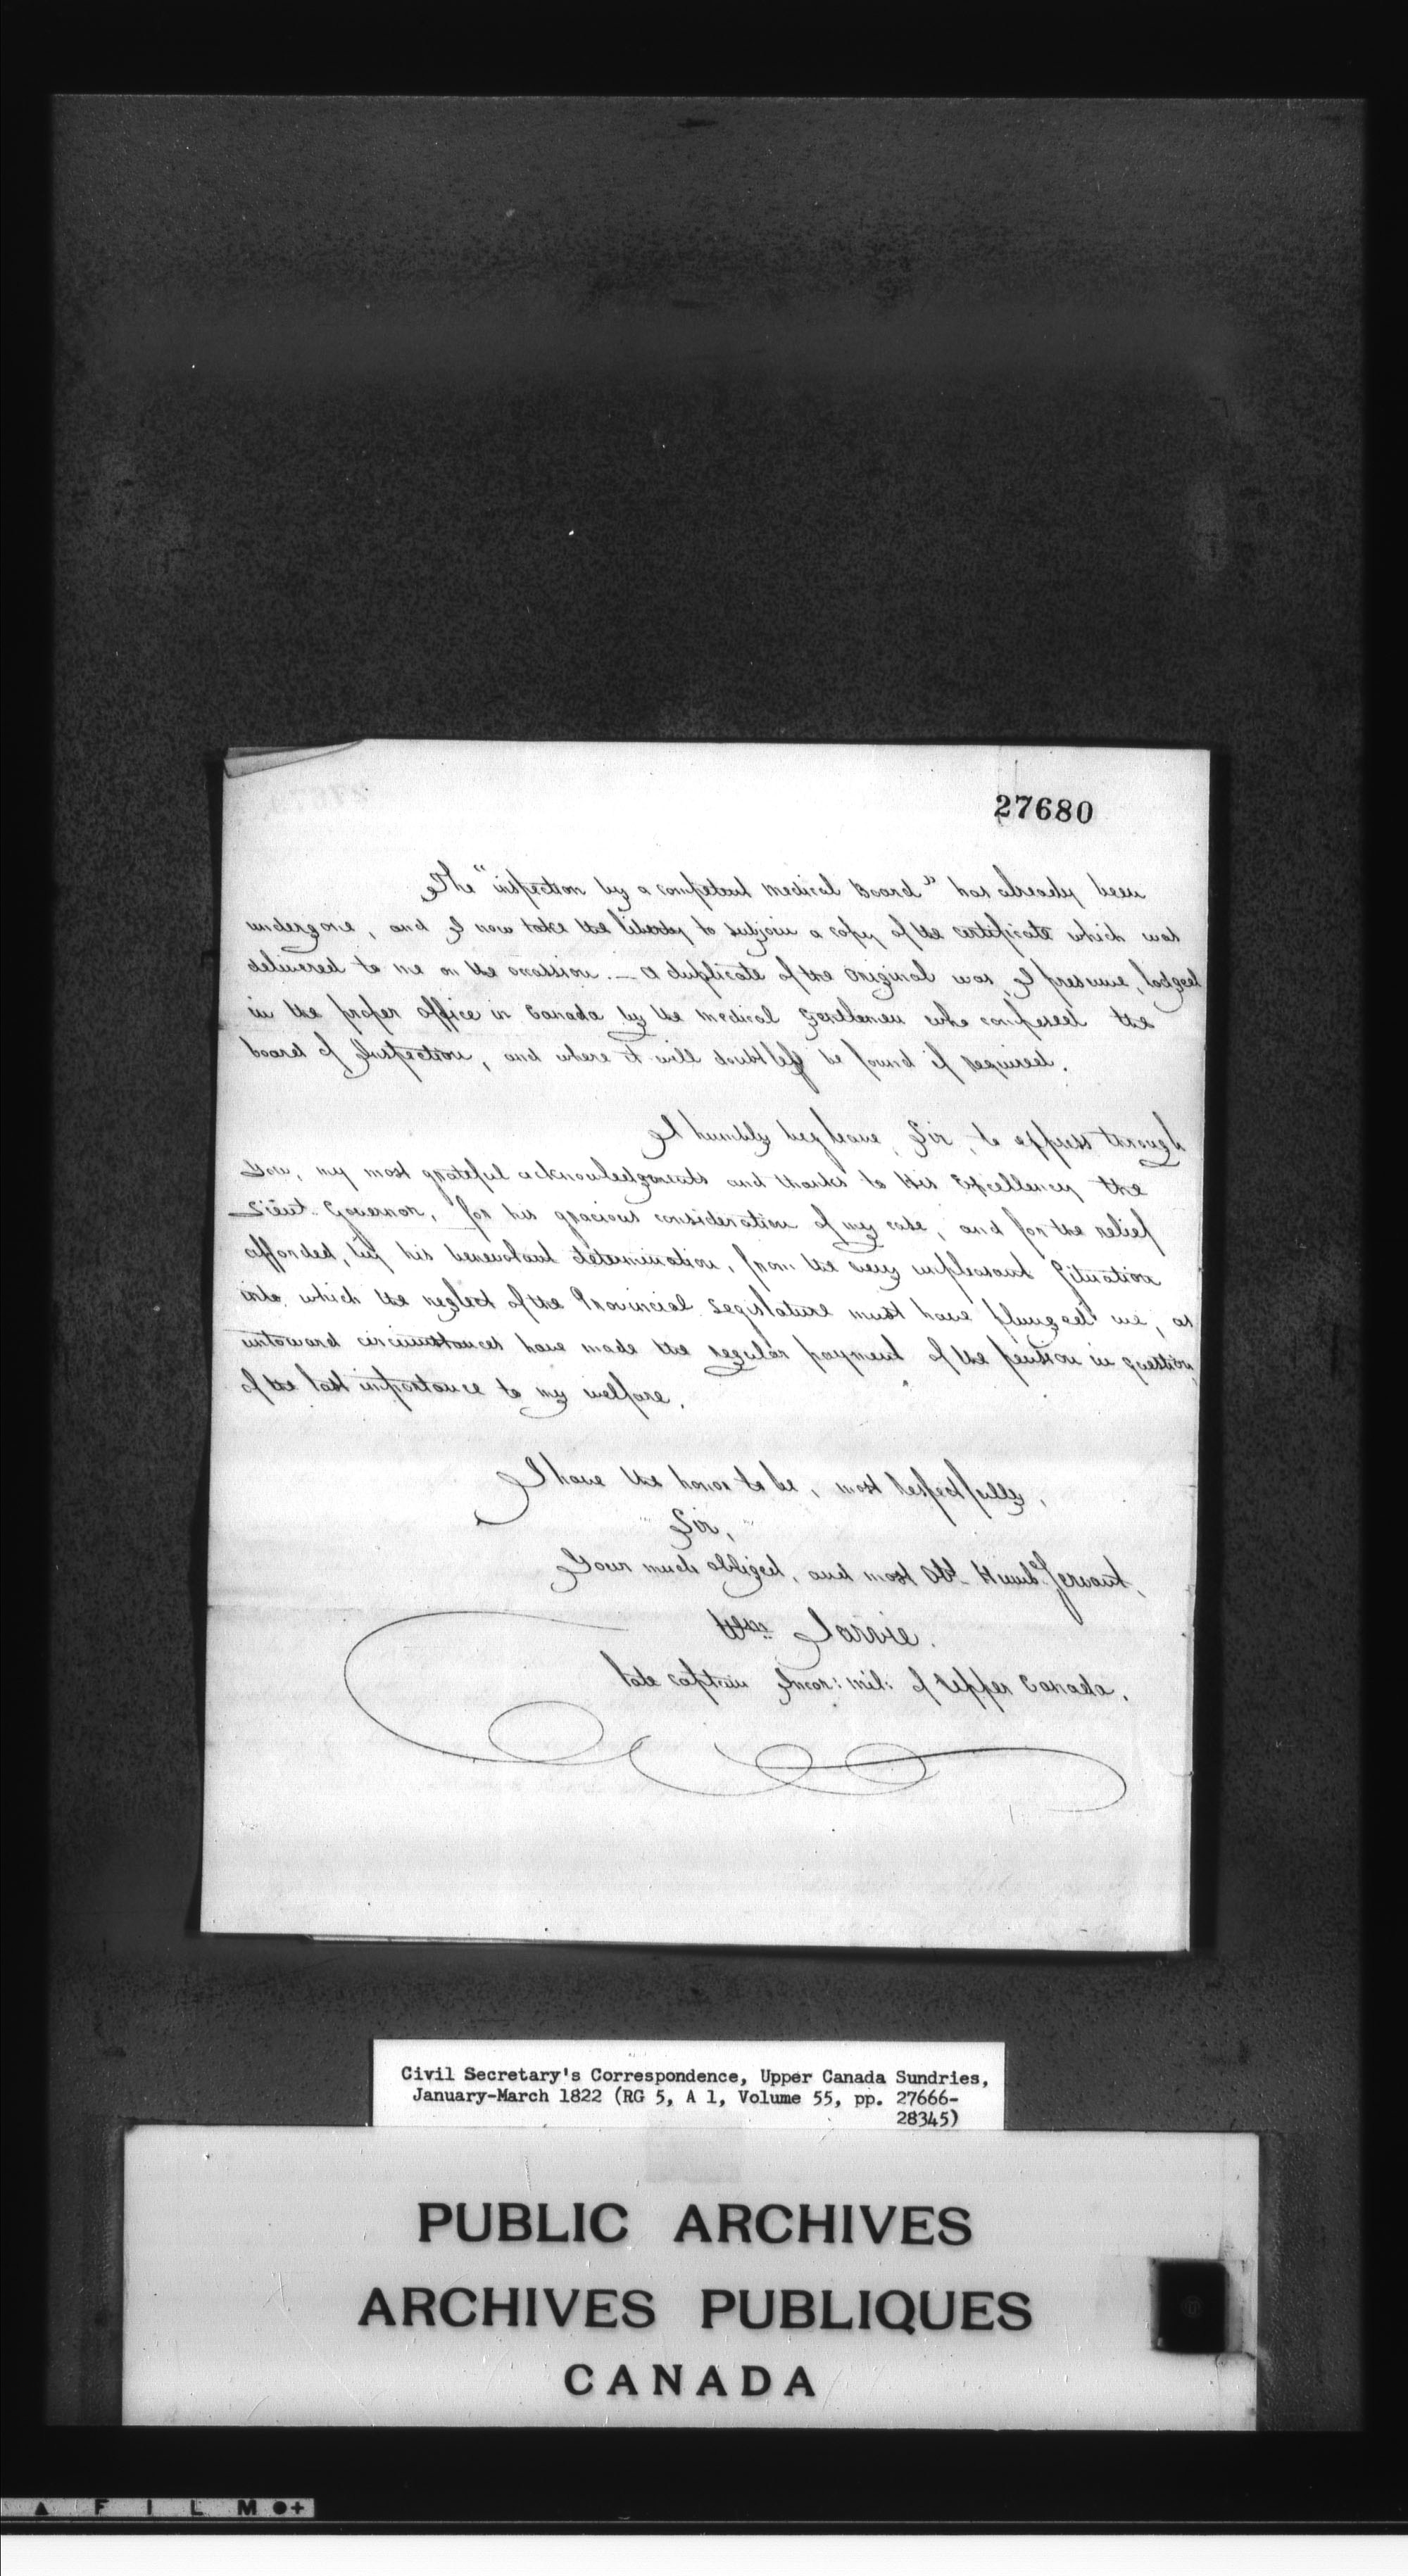 27680
The "inspection by a competent Medical Board" has already been
undergone, and I now take the liberty to subjoin a copy of the certificate which was
delivered to me on the occassion. — A duplicate of the Original was, I presume, lodged
in the proper office in Canada by the Medical Gentlemen who composed the
board of Inspection, and where it will doubtless be found if required.
I humbly beg leave, Sir, to express through
you, my most grateful acknowledgments and thanks to His Excellency the
Lieut. Governor, for his gracious consideration of my case, and for the relief
afforded, by his benevolent determination, from the very unpleasant situation
into which the neglect of the Provincial Legislature must have plunged me, as
untoward circumstances have made the regular payment of the pension in question,
of the last importance to my welfare.
I have the honor to be, most Respectfully,
Sir,
Your much obliged, and most Obt. Humb. Servant,
Wm Jarvie.
late Captain Incor: Mil: of Upper Canada.
Civil Secretary's Correspondence, Upper Canada Sundries,
January-March 1822 (RG 5, A 1, Volume 55, pp. 27666-
28345)
PUBLIC ARCHIVES
ARCHIVES PUBLIQUES
CANADA
F I L M